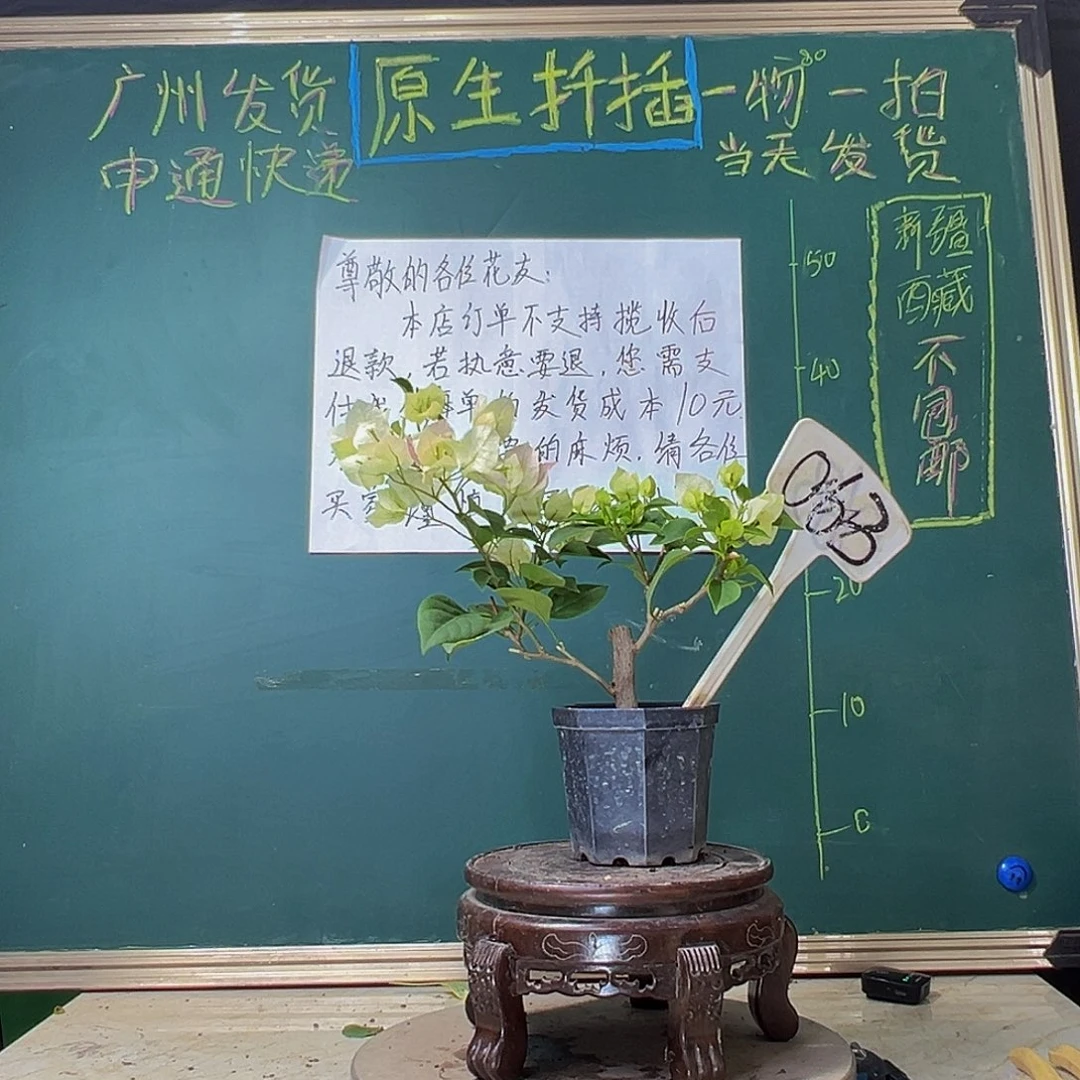 广州发货
原生扦插
一物一拍
申通快递
当天发货
新疆
西藏
不包邮
尊敬的各位花友:
本店订单不支持揽收后
退款,若执意要退,您需支
付 单的发货成本10元
的麻烦.请各位
买家
50
40
20
10
0